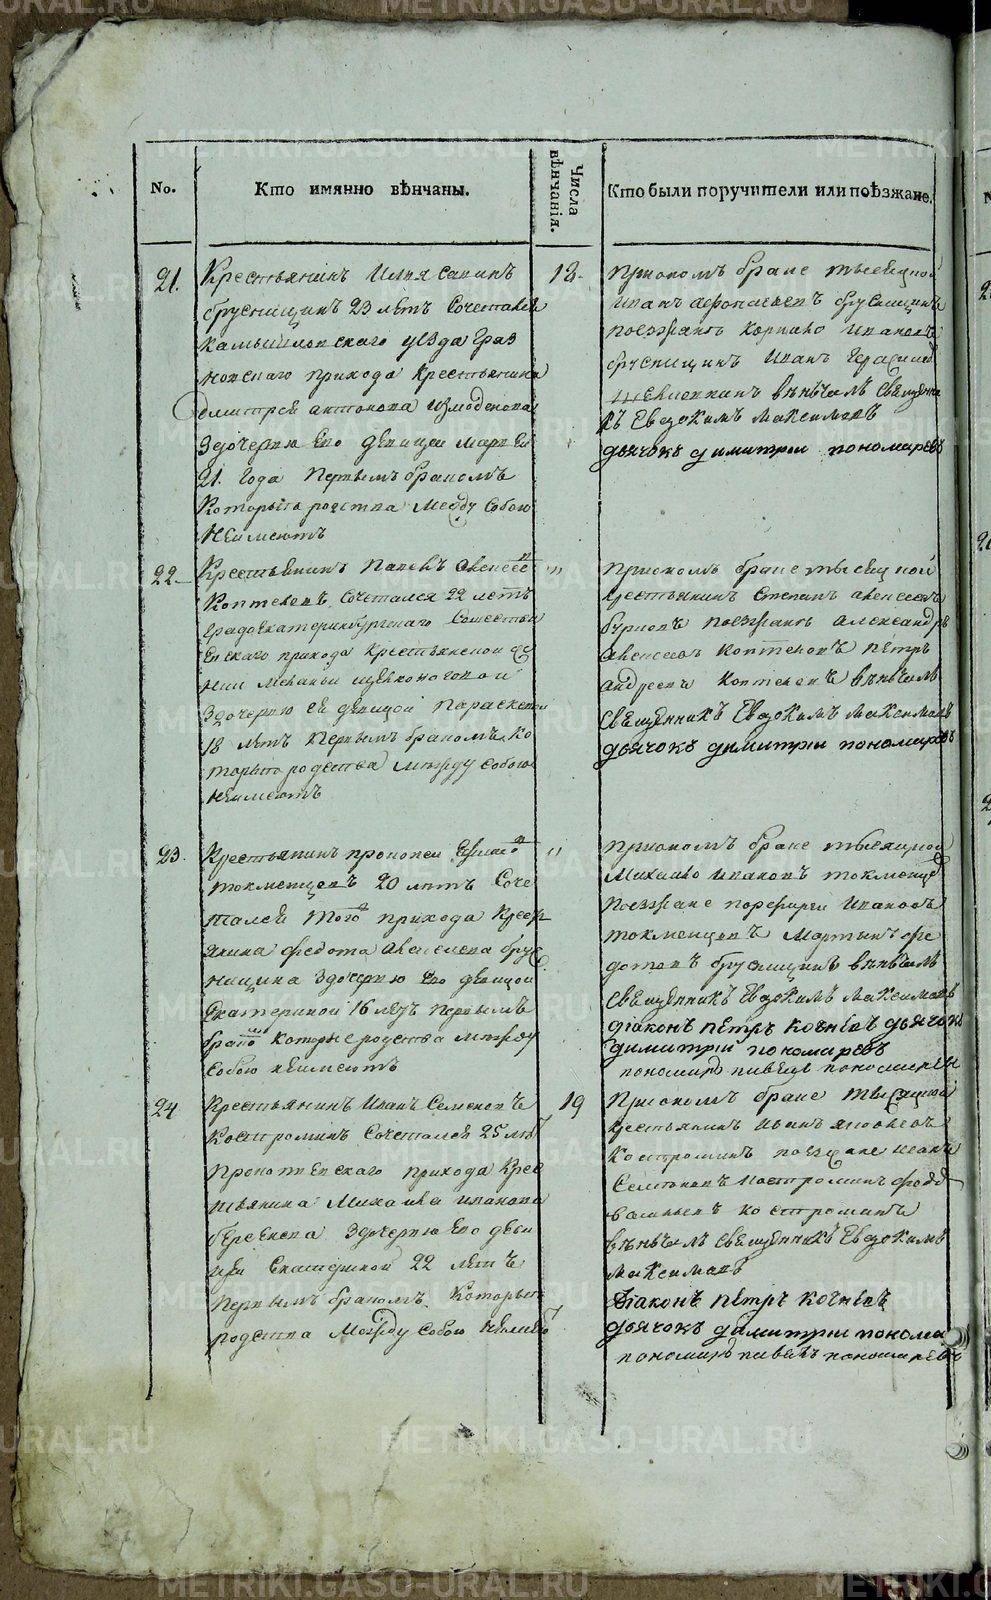 No.
Кто имянно вѣнчаны.
Числа вѣнчанія.
Кто были поручители или поѣзжане.
21.
Крестьянинъ Илья Савинъ
брусницинъ 23 летъ Сочетался
Камышловскаго уезда Граз
новскаго прихода Крестьянина
Дмитрея антонова Измоденова
Здочерью Его девицей Марией
21. Года Первымъ бракомъ
Которыя родства Между Собою
Неимеютъ
18.
Приономъ браке тысецкой
Иванъ афонасьевъ брусницинъ
поезжанъ Корнило Ивановъ
брусницинъ Иванъ Герасимов
венчалъ Свещенни
къ Евдокимъ Максимовъ
дьячокъ димитрий пономаревъ
22.
Крестьянинъ Павелъ Алексее
Коптеловъ Сочетался 22 летъ
градоекатеринбургскаго Сошестви
Евскаго прихода Крестьянской
Здочерью ее девицой Параскевой
18 летъ Первымъ бракомъ Ко
торыя родства Между Собою
неимеютъ
"
Приономъ браке тысецкой
крестьянинъ Степанъ алексеевъ
поезжанъ Александръ
Алексеевъ Коптеловъ Петръ
Андреевъ Коптеловъ венчалъ
Свещенникъ Евдокимъ Максимовъ
дьячокъ димитрий пономаревъ
23.
Крестьянинъ прокопей
токменцевъ 20 летъ Соче
тался того прихода Кресть
янина федота Алексеева брус
ницина Здочерью Его девицой
Екатериной 16 летъ первымъ
брако Которые родства между
Собою неимеютъ
"
Приономъ браке тысецкой
Михайло Ивановъ токменцев
Поезжане порфирей Ивановъ
токменцевъ Мартынъ фе
дотовъ брусницинъ венчалъ
Свещенникъ Евдокимъ Максимовъ
діаконъ петръ кочневъ дьячокъ
димитрий пономаревъ
пономарь павелъ пономаревъ
24
Крестьянинъ Иванъ Семеновъ
Костроминъ Сочетался 25 летъ
прихода Крес
тьянина Михайла Иванова
Здочерью Его деви
цей Екатериной 22 летъ
Первымъ бракомъ Которыя
родства Между Собою неимею
19
Приономъ браке тысяцкой
крестьянинъ Иванъ яковлевъ
Костроминъ поезжане Исакъ
Семеновъ Костроминъ федоръ
васильевъ костроминъ
венчалъ Свещенникъ Евдокимъ
Максимовъ
Діаконъ петръ кочневъ
дьячокъ димитрий понома
пономарь павелъ пономаревъ
METRIKI.GASO-URAL.RU